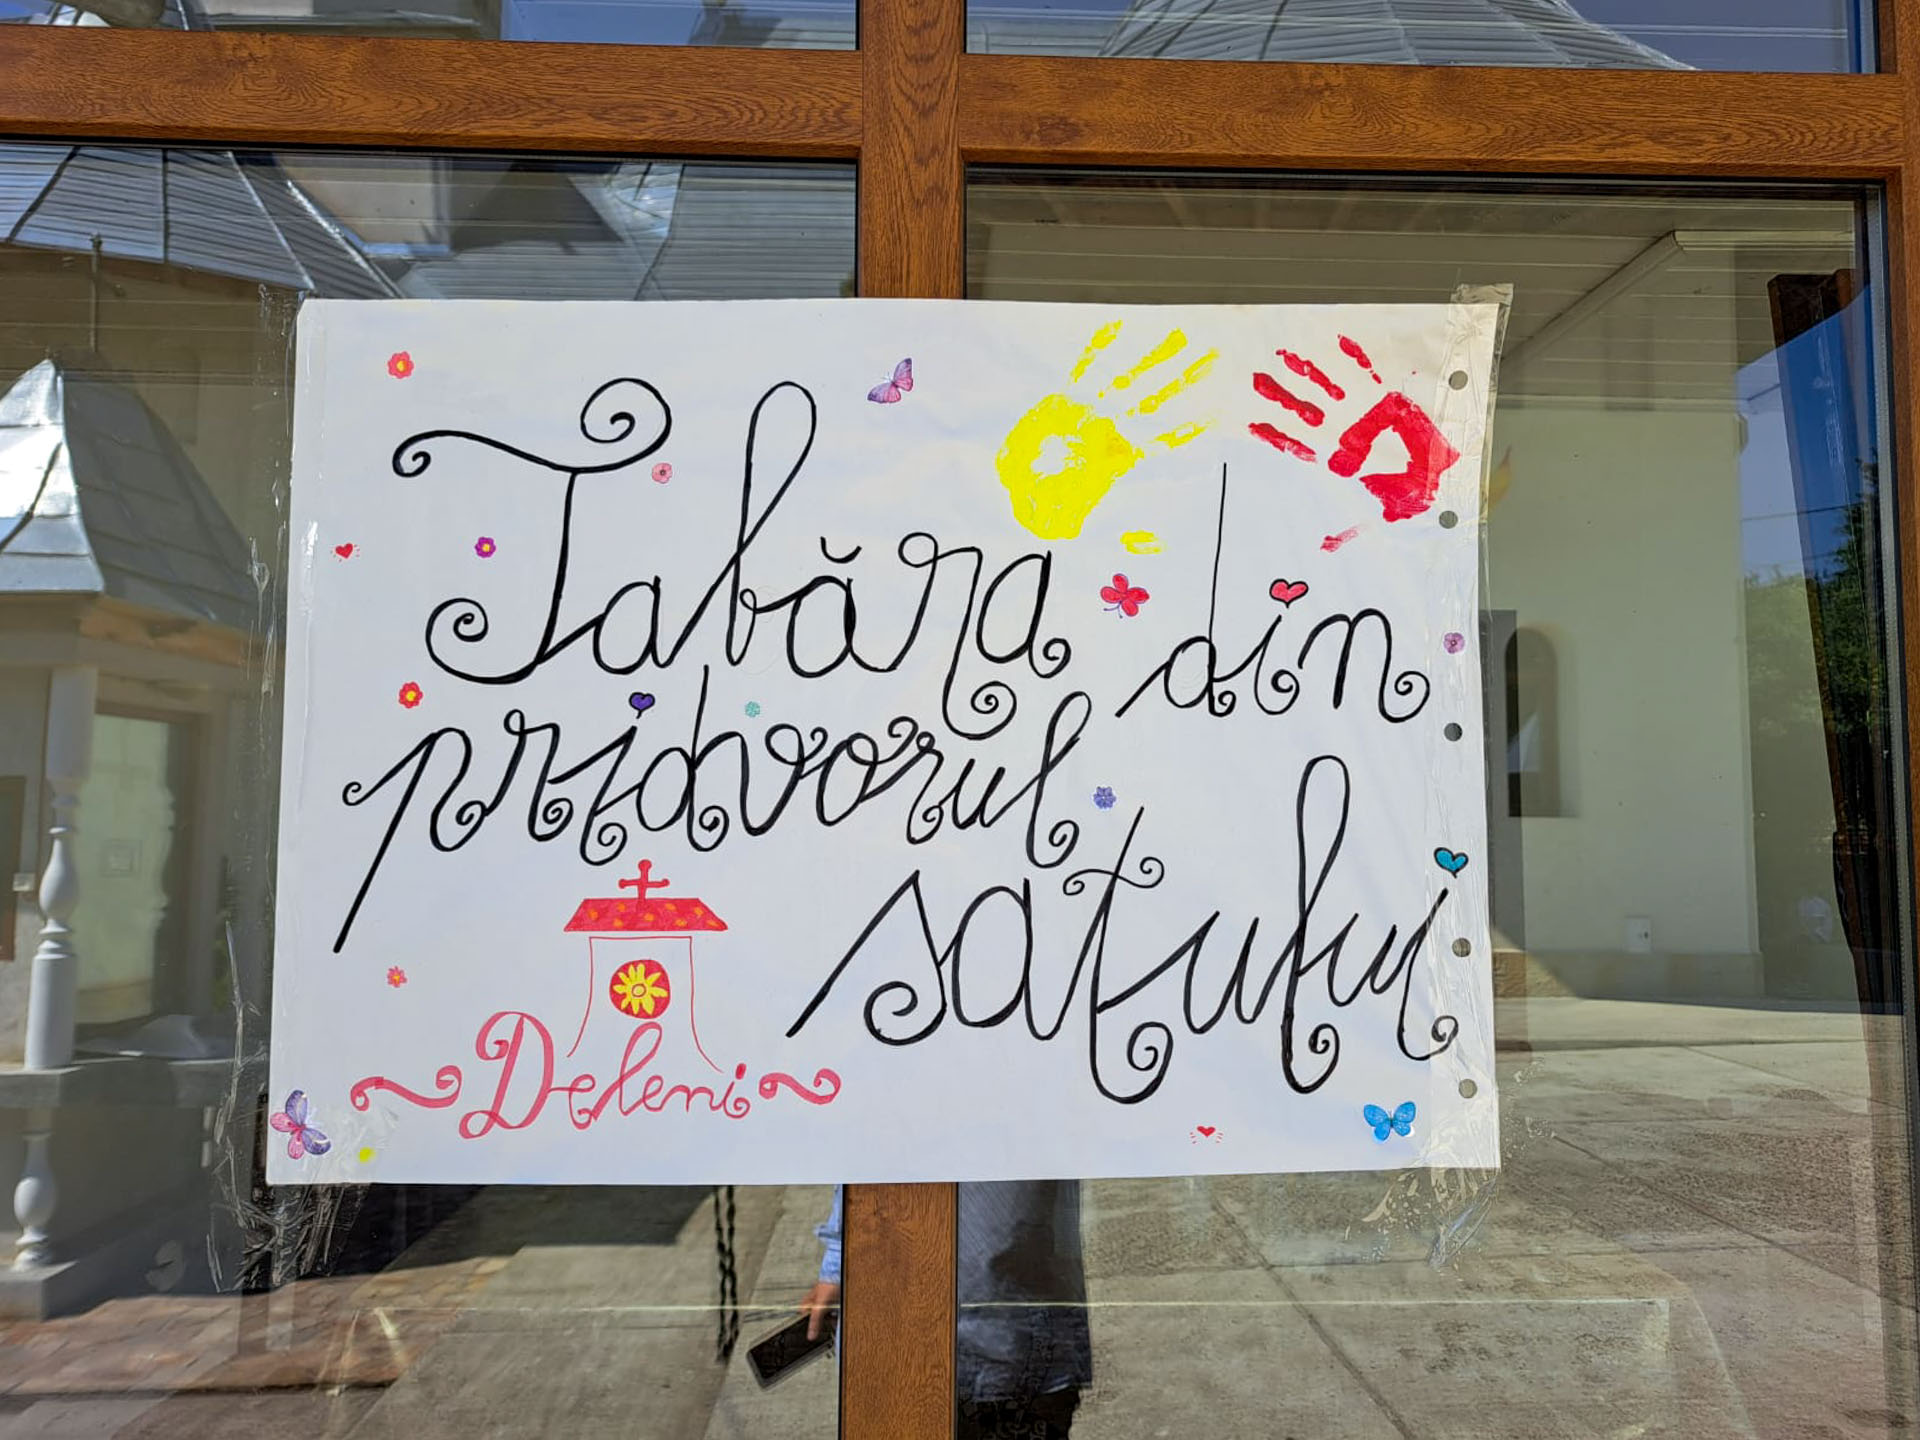 Tabăra din
pridvorul
satului
Deleni